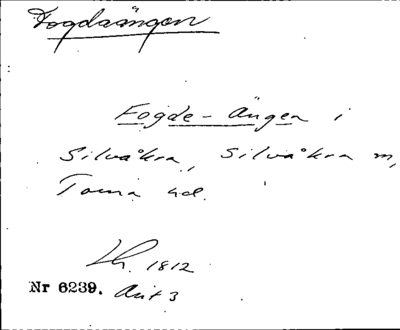 Fogdaängen
Fogde-Ängen i
Silvåkra, Silvåkra sn,
Torna hd.
Lh. 1812
Nr 6239. Akt 3